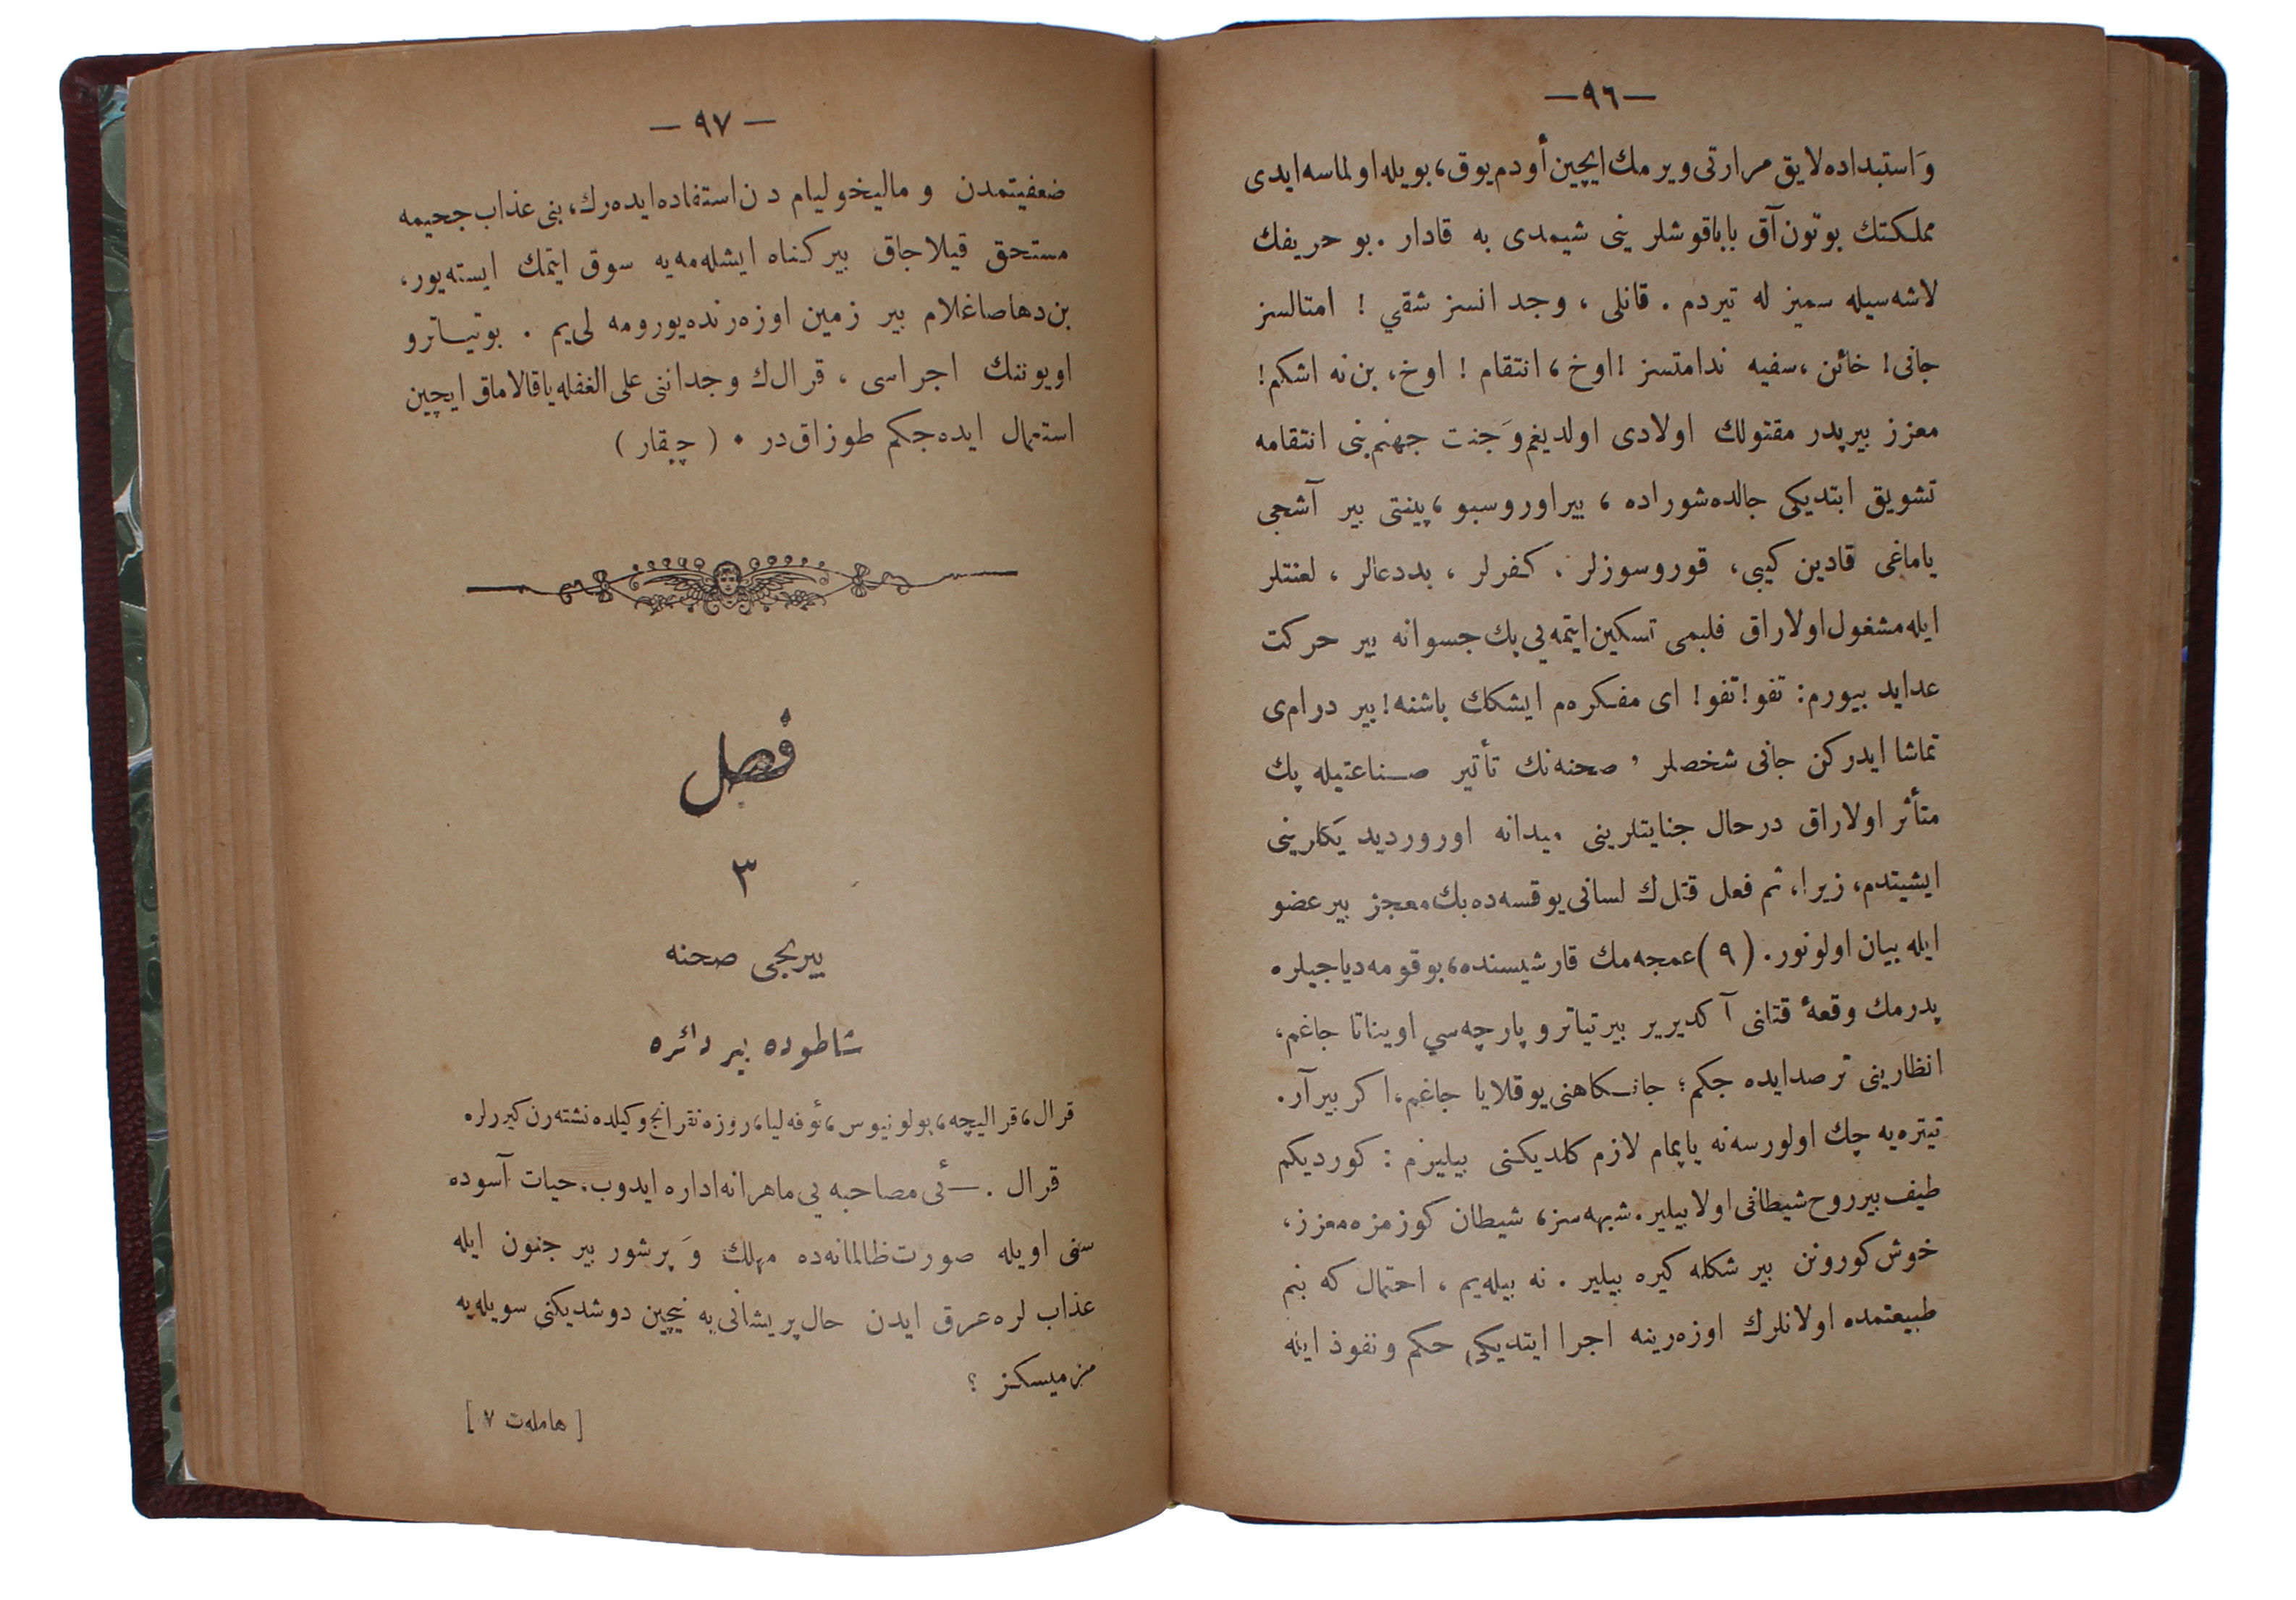 —٩٦—
وَاستبداده لايق مرارتى ويرمك ايچين أودم يوق، بويله اولماسه ايدى
مملكتك بوتون آق باباقوشلرينى شيمدى يه قادار . بو حريفك
لاشه‌سيله سميز له تيردم . قانلى ، وجدانسز شقي ! امثالسز
جانى! خائن ، سفيه ندامتسز ! اوخ ، انتقام ! اوخ، بن نه اشكم!
معزز بير پدر مقتولك اولادى اولديغم وَجنت جهنم بنى انتقامه
تشويق ابتديكى حالده شوراده ، بير اوروسبو ، پينتى بير آشجى
ياماغى قادين كيبى، قوروسوزلر . كفرلر ، بددعالر ، لعنتلر
ايله مشغول اولاراق قلبمى تسكين ايتمه يى پك جسوانه بير حركت
عدايد بيورم: تفو! تفو! اى مفكره‌م ايشكك باشنه! بير درام‌ى
تماشا ايدركن جانى شخصلر ، صحنه‌نك تأثير صـناعتيله پك
متأثر اولاراق درحال جنايتلرينى ميدانه اوروردید يكلرينى
ايشيتدم، زيرا، ثم فعل قتل‌ك لسانى يوقسه‌ده بك معجز بير عضو
ايله بيان اولونور. (٩) عمجه‌مك قارشيسنده، بوقومه‌دياجيلره
پدرمك وقعهٔ قتلنى آ كديرير بير تياترو پارچه‌سي اويناتا جاغم،
انظارينى ترصدايده جكم؛ جانكاهنى يوقلايا جاغم، اكر بيرآز.
تيتره‌يه چك اولورسه‌نه ياپمام لازم كلديكنى بيليرم : كورديكم
طيف بير روح شيطانى اولابيلير. شبهه‌سز، شيطان كوزمزه معزز،
خوش كورونن بير شكله كيره بيلير . نه بيله‌يم ، احتمال كه بنم
طبيعتمده اولانلرك اوزه‌رينه اجرا ايتديكى حكم ونفوذ اينه
— ٩٧ —
ضعفيتمدن و ماليخوليام دن استفاده ايده‌رك، بنى عذاب جحيمه
مستحق قيلاجاق بير كناه ايشله‌مه‌يه سوق ايتمك ايسته‌يور،
بن دها صاغلام بير زمين اوزه‌رنده يورومه لى‌يم . بوتيـاترو
اويوننك اجراسى ، قرال‌ك وجداننى على الغفله ياقالاماق ايچين
استعمال ايده‌جكم طوزاق‌در . ( چيقار )
فصل
٣
بيرنجى صحنه
شاطوده بير دائره
قرال، قراليچه، پولونيوس، ئوفه‌ليا، روزه‌نقرانج وكيلده‌نشته‌رن كيررلر
قرال . — ئى مصاحبه يى ماهرانه اداره ايدوب. حيات آسوده
سنى اويله صورت ظالمانه‌ده مهلك وَ پرشور بير جنون ايله
عذاب لره غرق ايدن حال پريشانى‌يه نيچين دوشديكنى سويله‌يه
مزميسكز ؟
[ هامله‌ت ٧ ]